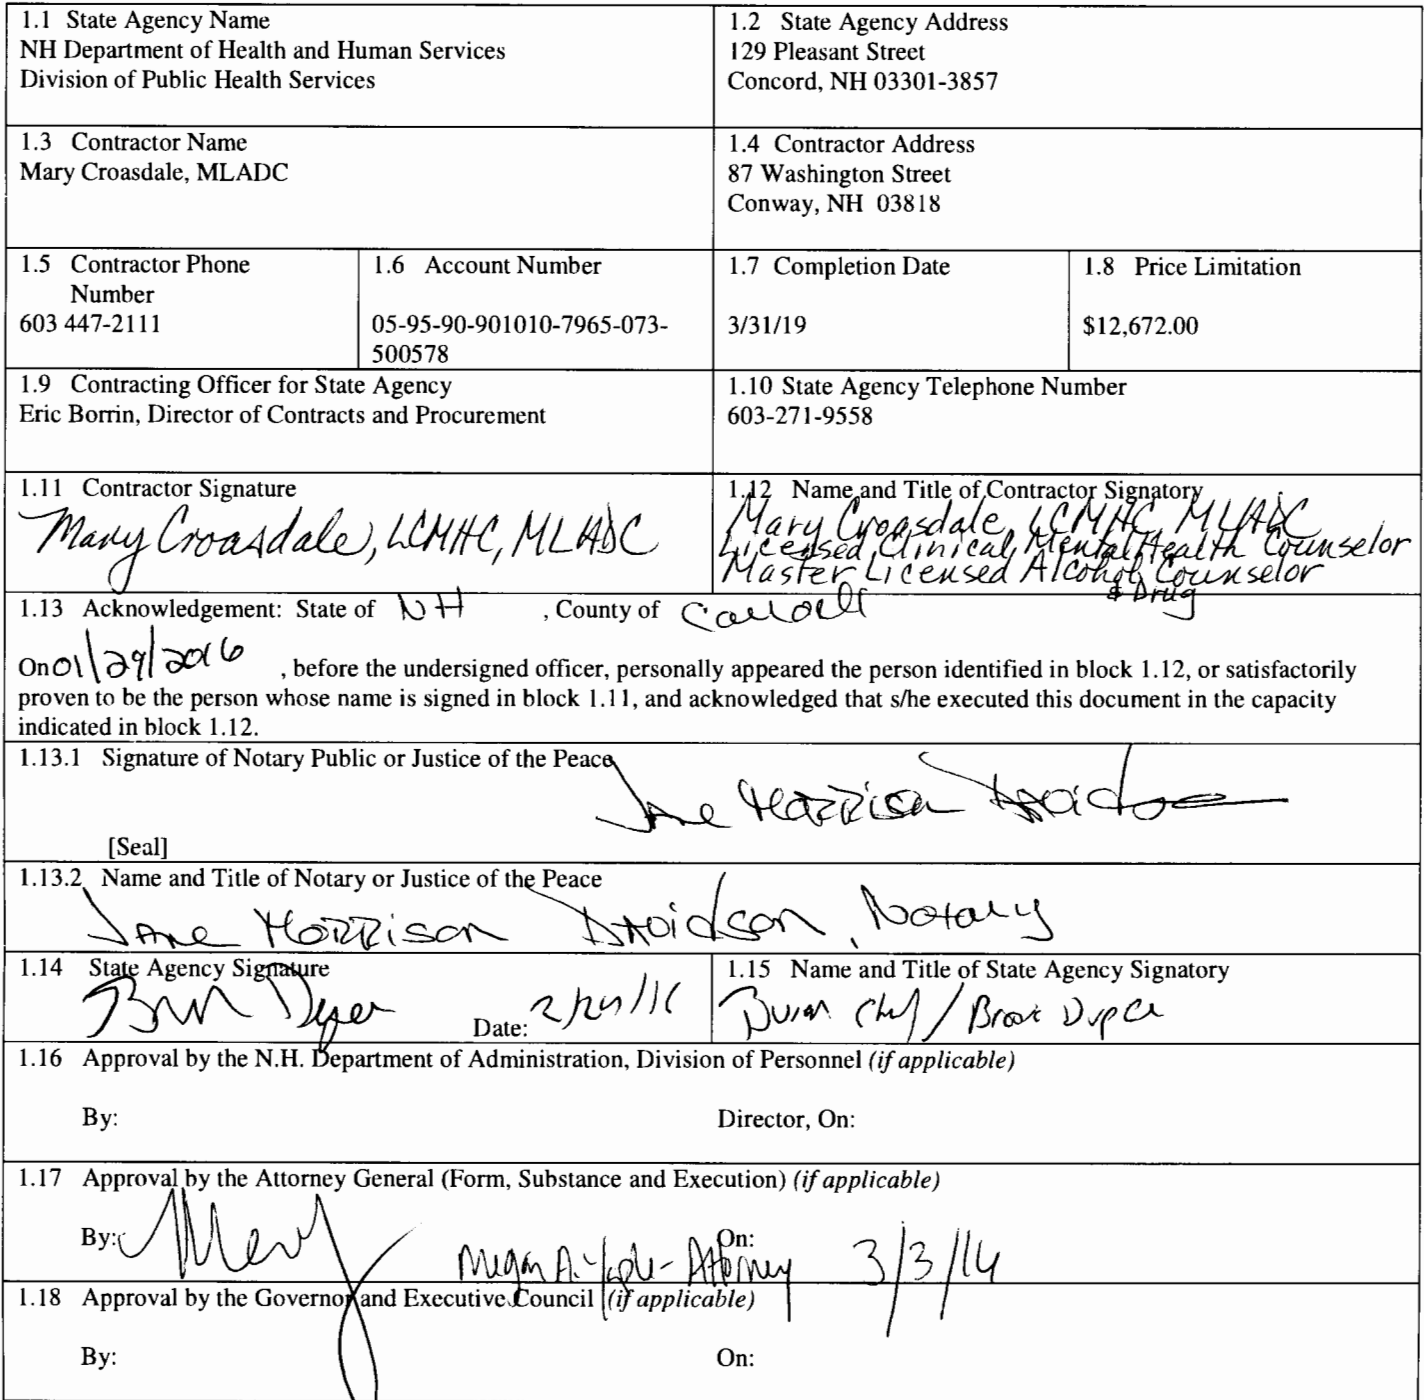 1.1 State Agency Name
NH Department of Health and Human Services
Division of Public Health Services
1.2 State Agency Address
129 Pleasant Street
Concord, NH 03301-3857
1.3 Contractor Name
Mary Croasdale, MLADC
1.4 Contractor Address
87 Washington Street
Conway, NH 03818
1.5 Contractor Phone
Number
603 447-2111
1.6 Account Number
05-95-90-901010-7965-073-
500578
1.7 Completion Date
3/31/19
1.8 Price Limitation
$12,672.00
1.9 Contracting Officer for State Agency
Eric Borrin, Director of Contracts and Procurement
1.10 State Agency Telephone Number
603-271-9558
1.11 Contractor Signature
Mary Croasdale, LCMHC, MLADC
1.12 Name and Title of Contractor Signatory
Mary Croasdale, LCMHC, MLADC
Licensed Clinical Mental Health Counselor
Master Licensed Alcohol Counselor
& Drug
1.13 Acknowledgement: State of NH , County of Carroll
On 01/29/2016 , before the undersigned officer, personally appeared the person identified in block 1.12, or satisfactorily
proven to be the person whose name is signed in block 1.11, and acknowledged that s/he executed this document in the capacity
indicated in block 1.12.
1.13.1 Signature of Notary Public or Justice of the Peace
Jane Morrison Davidson
[Seal]
1.13.2 Name and Title of Notary or Justice of the Peace
Jane Morrison Davidson, Notary
1.14 State Agency Signature
Date:
1.15 Name and Title of State Agency Signatory
1.16 Approval by the N.H. Department of Administration, Division of Personnel (if applicable)
By: Director, On:
1.17 Approval by the Attorney General (Form, Substance and Execution) (if applicable)
By: Megan A. - Attorney On: 3/3/16
1.18 Approval by the Governor and Executive Council (if applicable)
By: On: